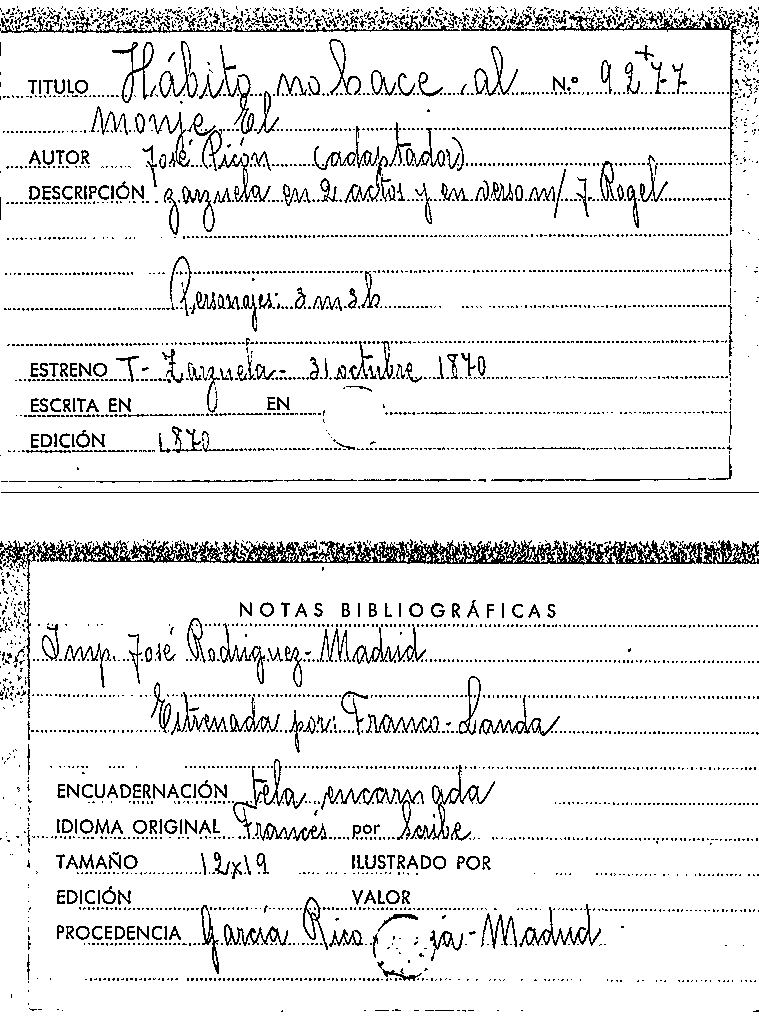 TITULO Hábito no hace al N.º 9277
monje El
AUTOR José Ricón (adaptador)
DESCRIPCIÓN zarzuela en 2 actos y en verso m/ J. Rogel
Personajes: 3 m 3 h
ESTRENO T- Zarzuela - 31 octubre 1870
ESCRITA EN EN
EDICIÓN 1870
NOTAS BIBLIOGRÁFICAS
Imp. José Rodriguez - Madrid
Estrenada por: Franco-Landa
ENCUADERNACIÓN tela encarnada
IDIOMA ORIGINAL Francés por Scribe
TAMAÑO 12x19 ILUSTRADO POR
EDICIÓN VALOR
PROCEDENCIA García Rico - Madrid